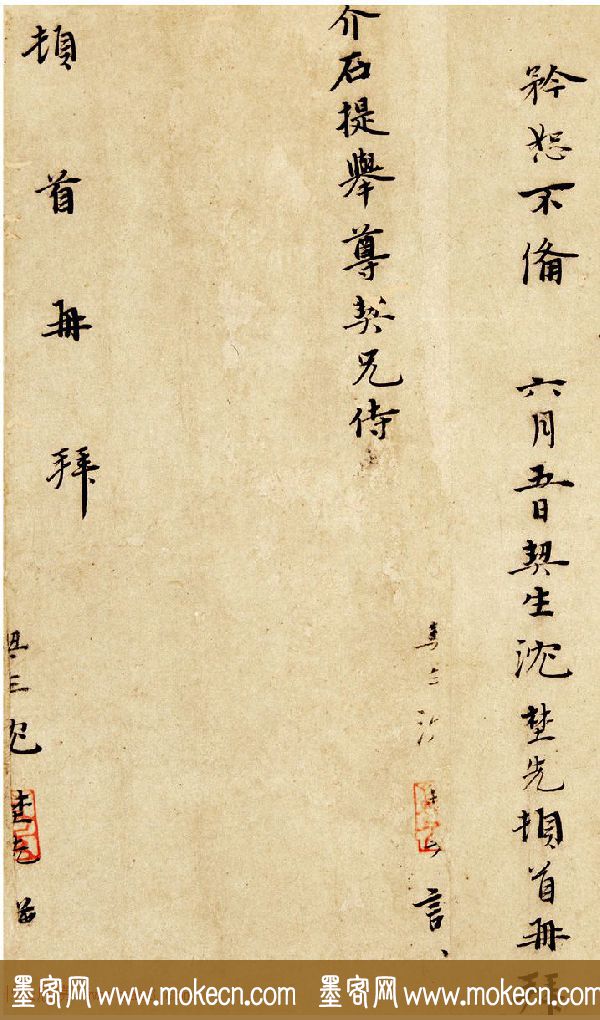 矜恕不備 六月五日契生沈埜先頓首再拜
言、
介石提舉尊契兄侍
頓首再拜
墨客网 www.mokecn.com 墨客网 www.mokecn.com